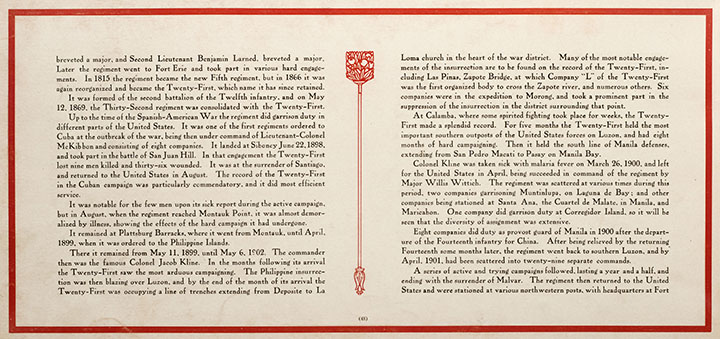 breveted a major, and Second Lieutenant Benjamin Larned, breveted a major.
Later the regiment went to Fort Erie and took part in various hard engage-
ments. In 1815 the regiment became the new Fifth regiment, but in 1866 it was
again reorganized and became the Twenty-First, which name it has since retained.
It was formed of the second battalion of the Twelfth infantry, and on May
12, 1869, the Thirty-Second regiment was consolidated with the Twenty-First.
Up to the time of the Spanish-American War the regiment did garrison duty in
different parts of the United States. It was one of the first regiments ordered to
Cuba at the outbreak of the war, being then under command of Lieutenant-Colonel
McKibbon and consisting of eight companies. It landed at Siboney June 22, 1898,
and took part in the battle of San Juan Hill. In that engagement the Twenty-First
lost nine men killed and thirty-six wounded. It was at the surrender of Santiago,
and returned to the United States in August. The record of the Twenty-First
in the Cuban campaign was particularly commendatory, and it did most efficient
service.
It was notable for the few men upon its sick report during the active campaign,
but in August, when the regiment reached Montauk Point, it was almost demor-
alized by illness, showing the effects of the hard campaign it had undergone.
It remained at Plattsburg Barracks, where it went from Montauk, until April,
1899, when it was ordered to the Philippine Islands.
There it remained from May 11, 1899, until May 6, 1902. The commander
then was the famous Colonel Jacob Kline. In the months following its arrival
the Twenty-First saw the most arduous campaigning. The Philippine insurrec-
tion was then blazing over Luzon, and by the end of the month of its arrival the
Twenty-First was occupying a line of trenches extending from Deposito to La
Loma church in the heart of the war district. Many of the most notable engage-
ments of the insurrection are to be found on the record of the Twenty-First, in-
cluding Las Pinas, Zapote Bridge, at which Company "L" of the Twenty-First
was the first organized body to cross the Zapote river, and numerous others. Six
companies were in the expedition to Morong, and took a prominent part in the
suppression of the insurrection in the district surrounding that point.
At Calamba, where some spirited fighting took place for weeks, the Twenty-
First made a splendid record. For five months the Twenty-First held the most
important southern outposts of the United States forces on Luzon, and had eight
months of hard campaigning. Then it held the south line of Manila defenses,
extending from San Pedro Macati to Pasay on Manila Bay.
Colonel Kline was taken sick with malaria fever on March 26, 1900, and left
for the United States in April, being succeeded in command of the regiment by
Major Willis Wittich. The regiment was scattered at various times during this
period, two companies garrisoning Muntinlupa, on Laguna de Bay; and other
companies being stationed at Santa Ana, the Cuartel de Malate, in Manila, and
Maricahon. One company did garrison duty at Corregidor Island, so it will be
seen that the diversity of assignment was extensive.
Eight companies did duty as provost guard of Manila in 1900 after the depart-
ure of the Fourteenth infantry for China. After being relieved by the returning
Fourteenth some months later, the regiment went back to southern Luzon, and by
April, 1901, had been scattered into twenty-nine separate commands.
A series of active and trying campaigns followed, lasting a year and a half, and
ending with the surrender of Malvar. The regiment then returned to the United
States and were stationed at various northwestern posts, with headquarters at Fort